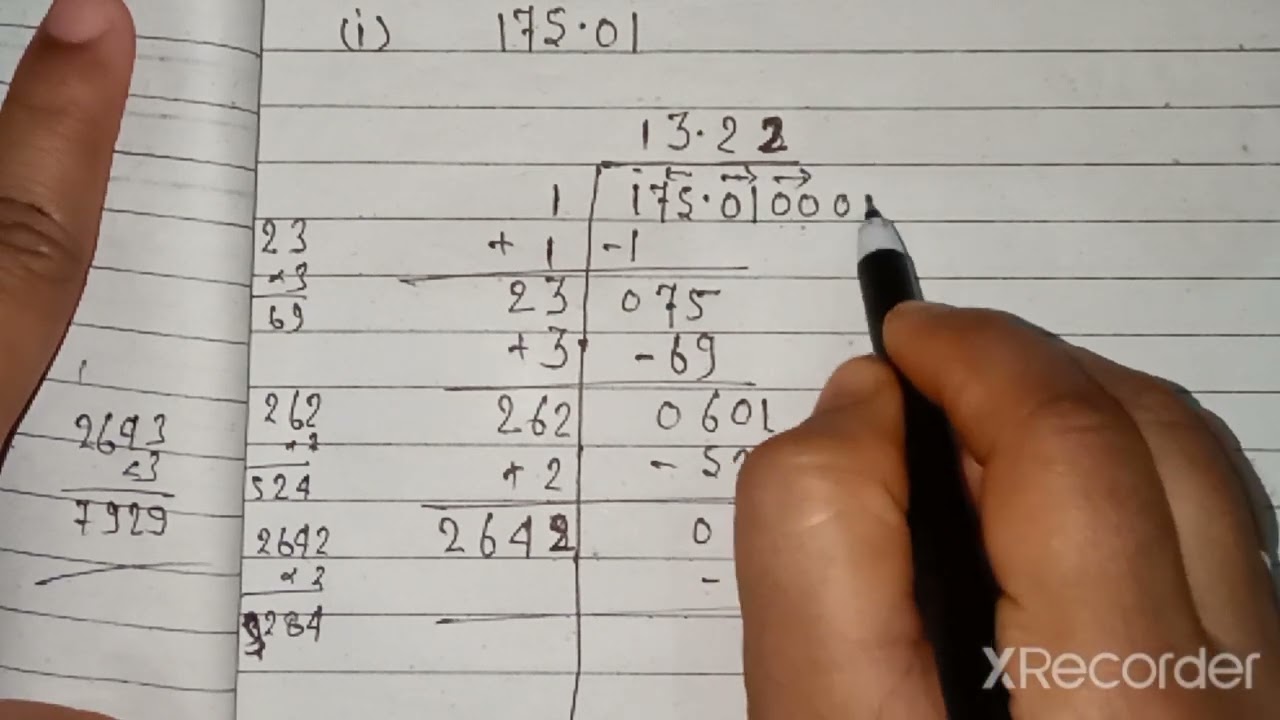 (i) 175.01
13.22
1 175.01000
+ 1 -1
23 075
+3 -69
262 0601
+ 2 - 5
2642 0
-
23
×3
69
262
×2
524
2642
× 2
5284
2643
×3
7929
XRecorder